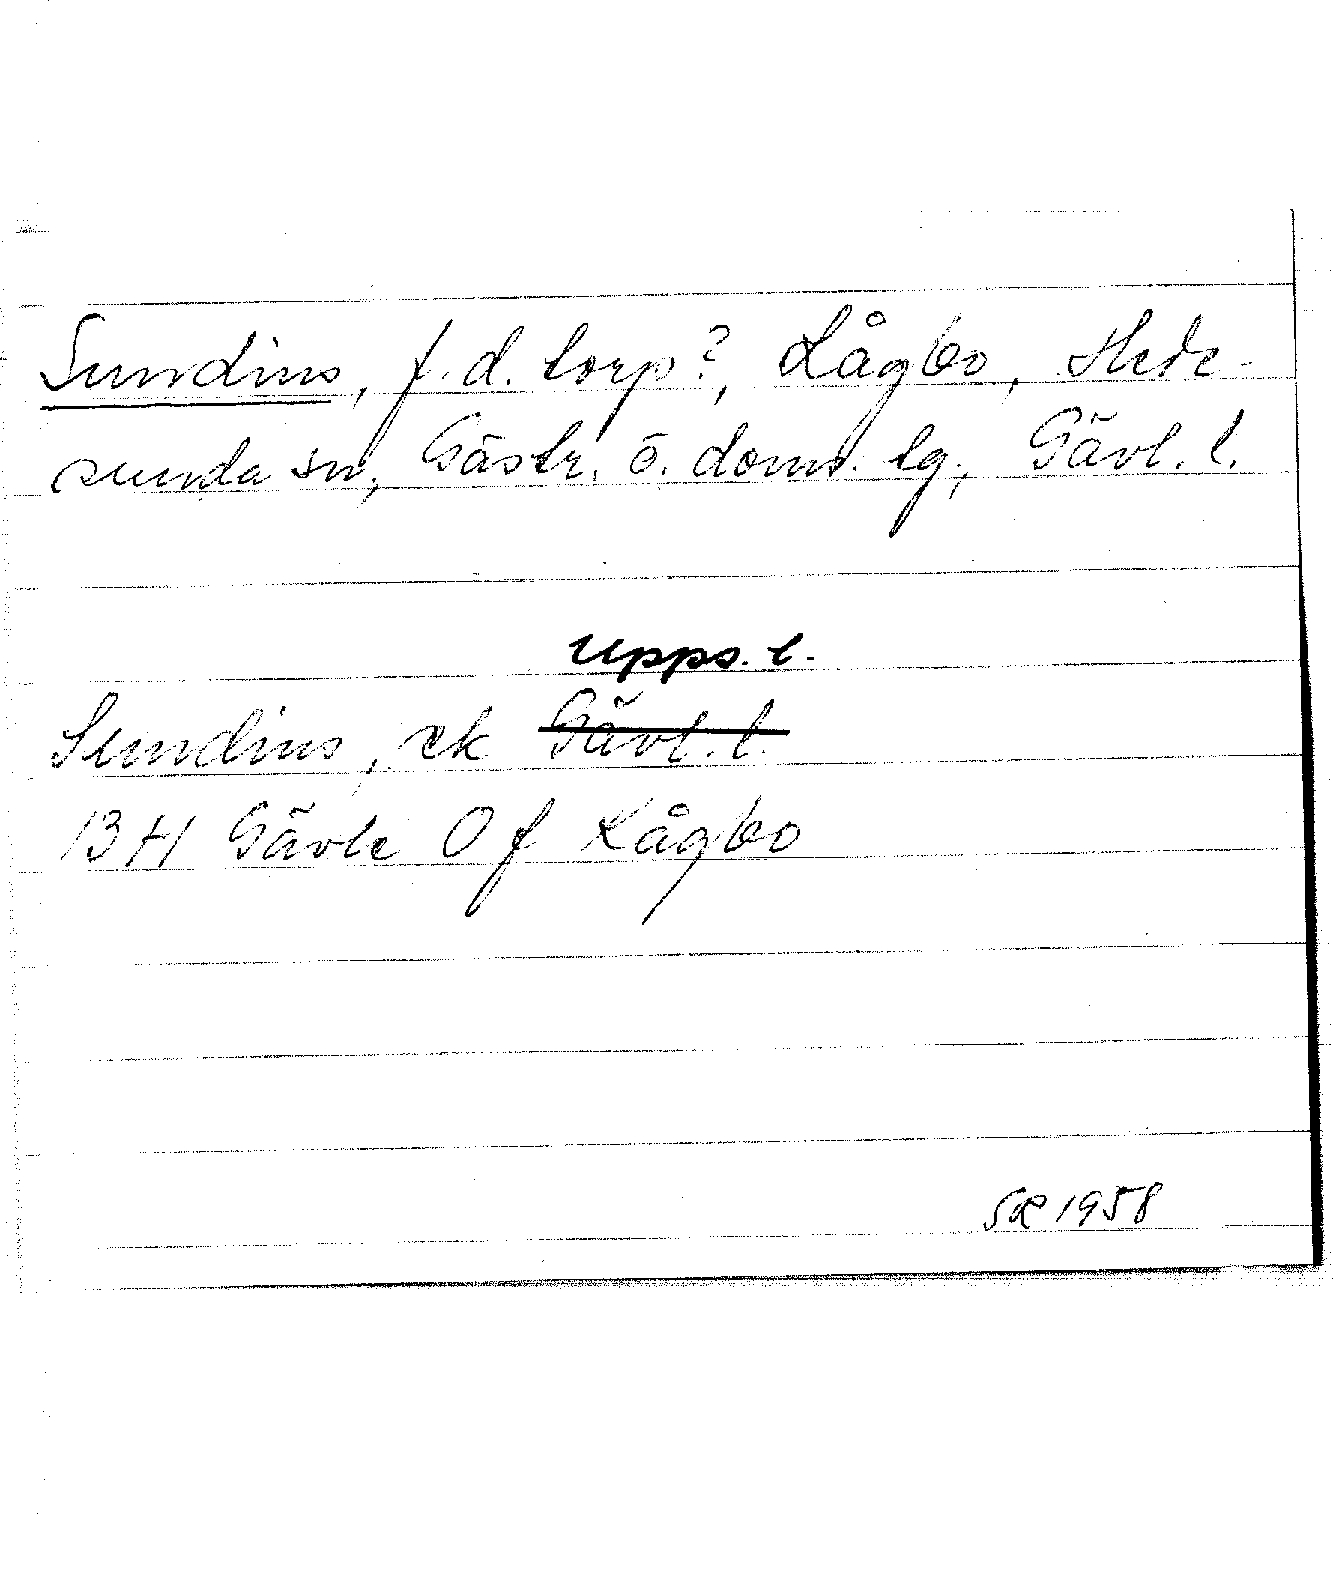 Sundins, f.d. torp?, Kågbo, Hede-
sunda sn, Gästr. ö. doms. lg., Gävl. l.
Upps. l.
Sundins, ek Gävl. l.
13 H Gävle Of Kågbo
SR 1958